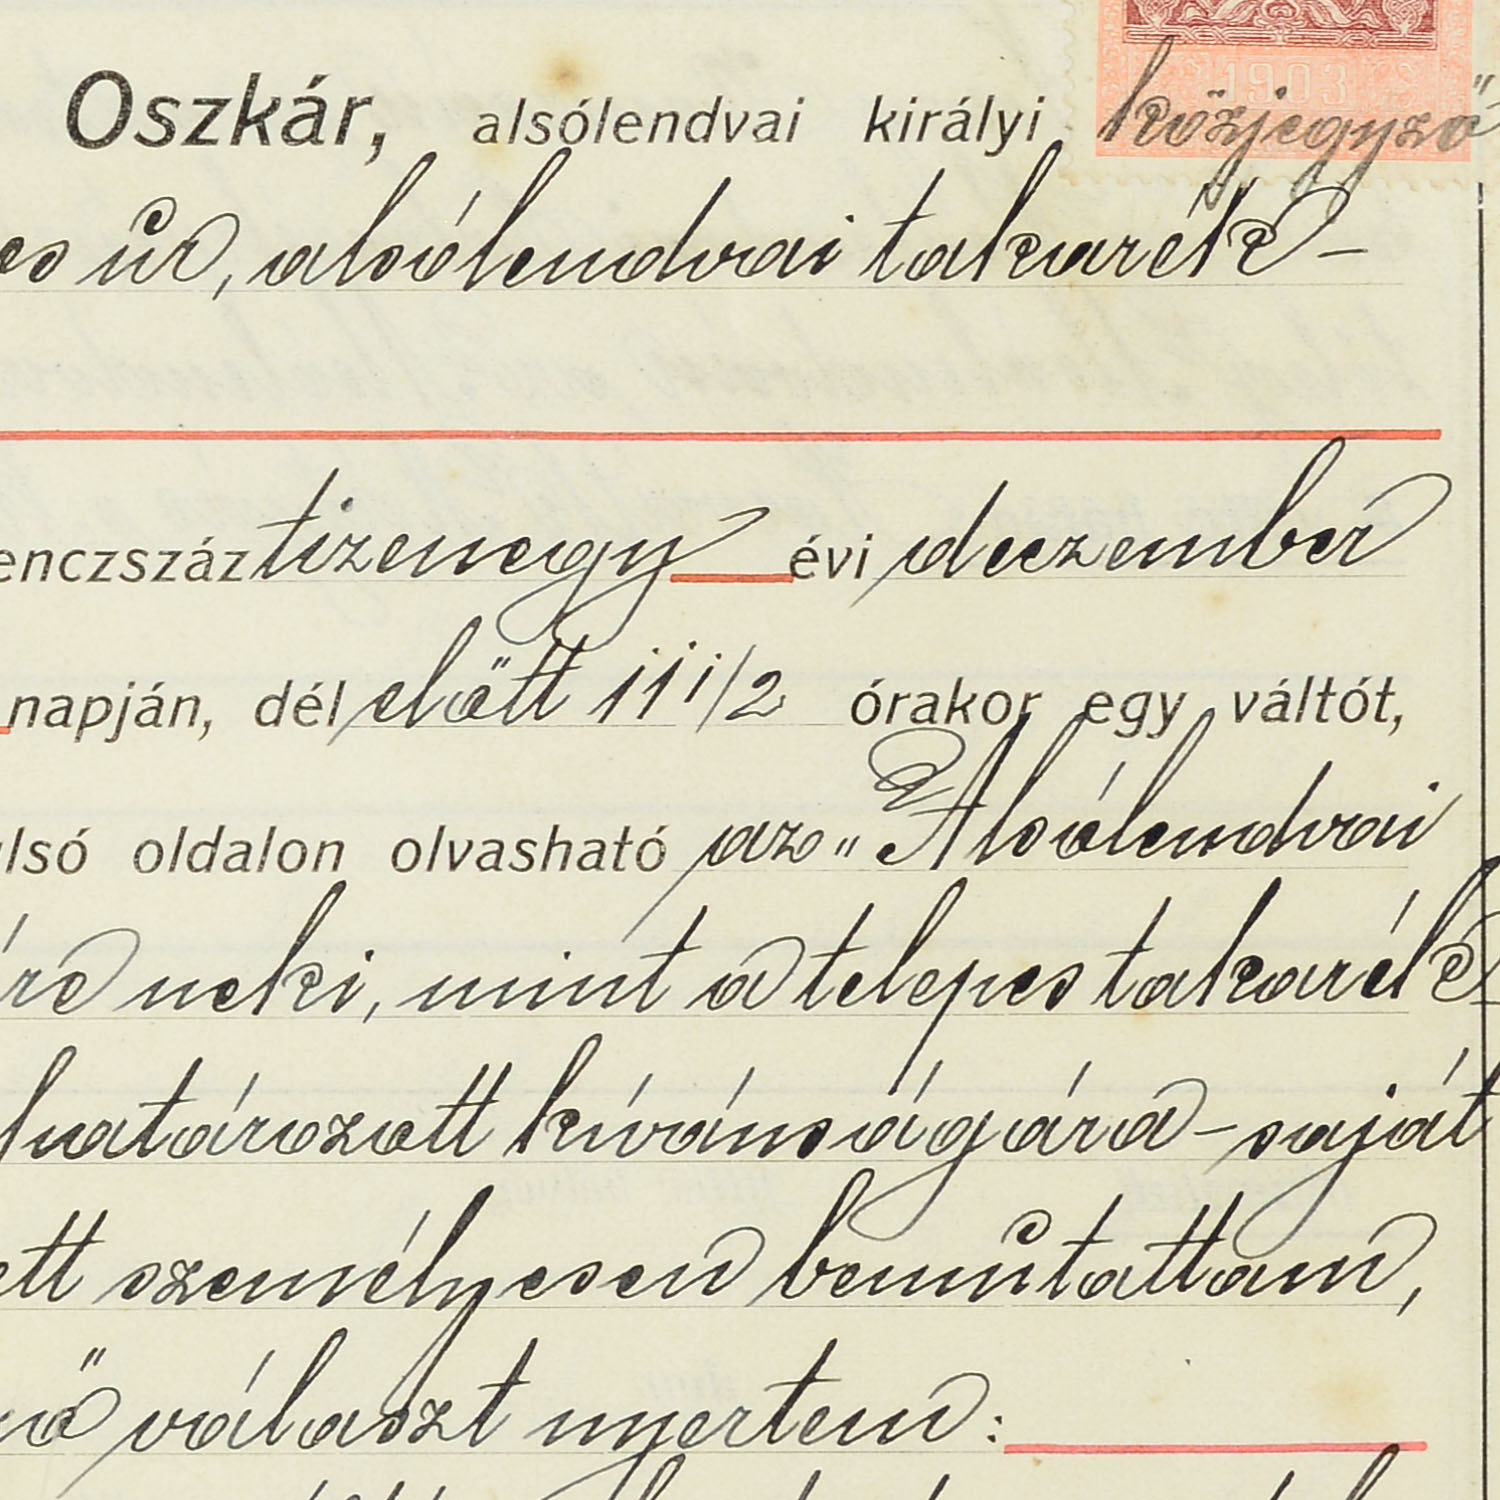 1903
Oszkár, alsólendvai királyi közjegyző
es úr, alsólendvai takarék-
enczszáz tizenegy évi deczember
napján, dél előtt 11 1/2 órakor egy váltót,
ulsó oldalon olvasható az „Alsólendvai
re neki, mint a telepes takarék
határozott kívánságára - saját
ett személyesen bemutattam,
ő választ nyertem: